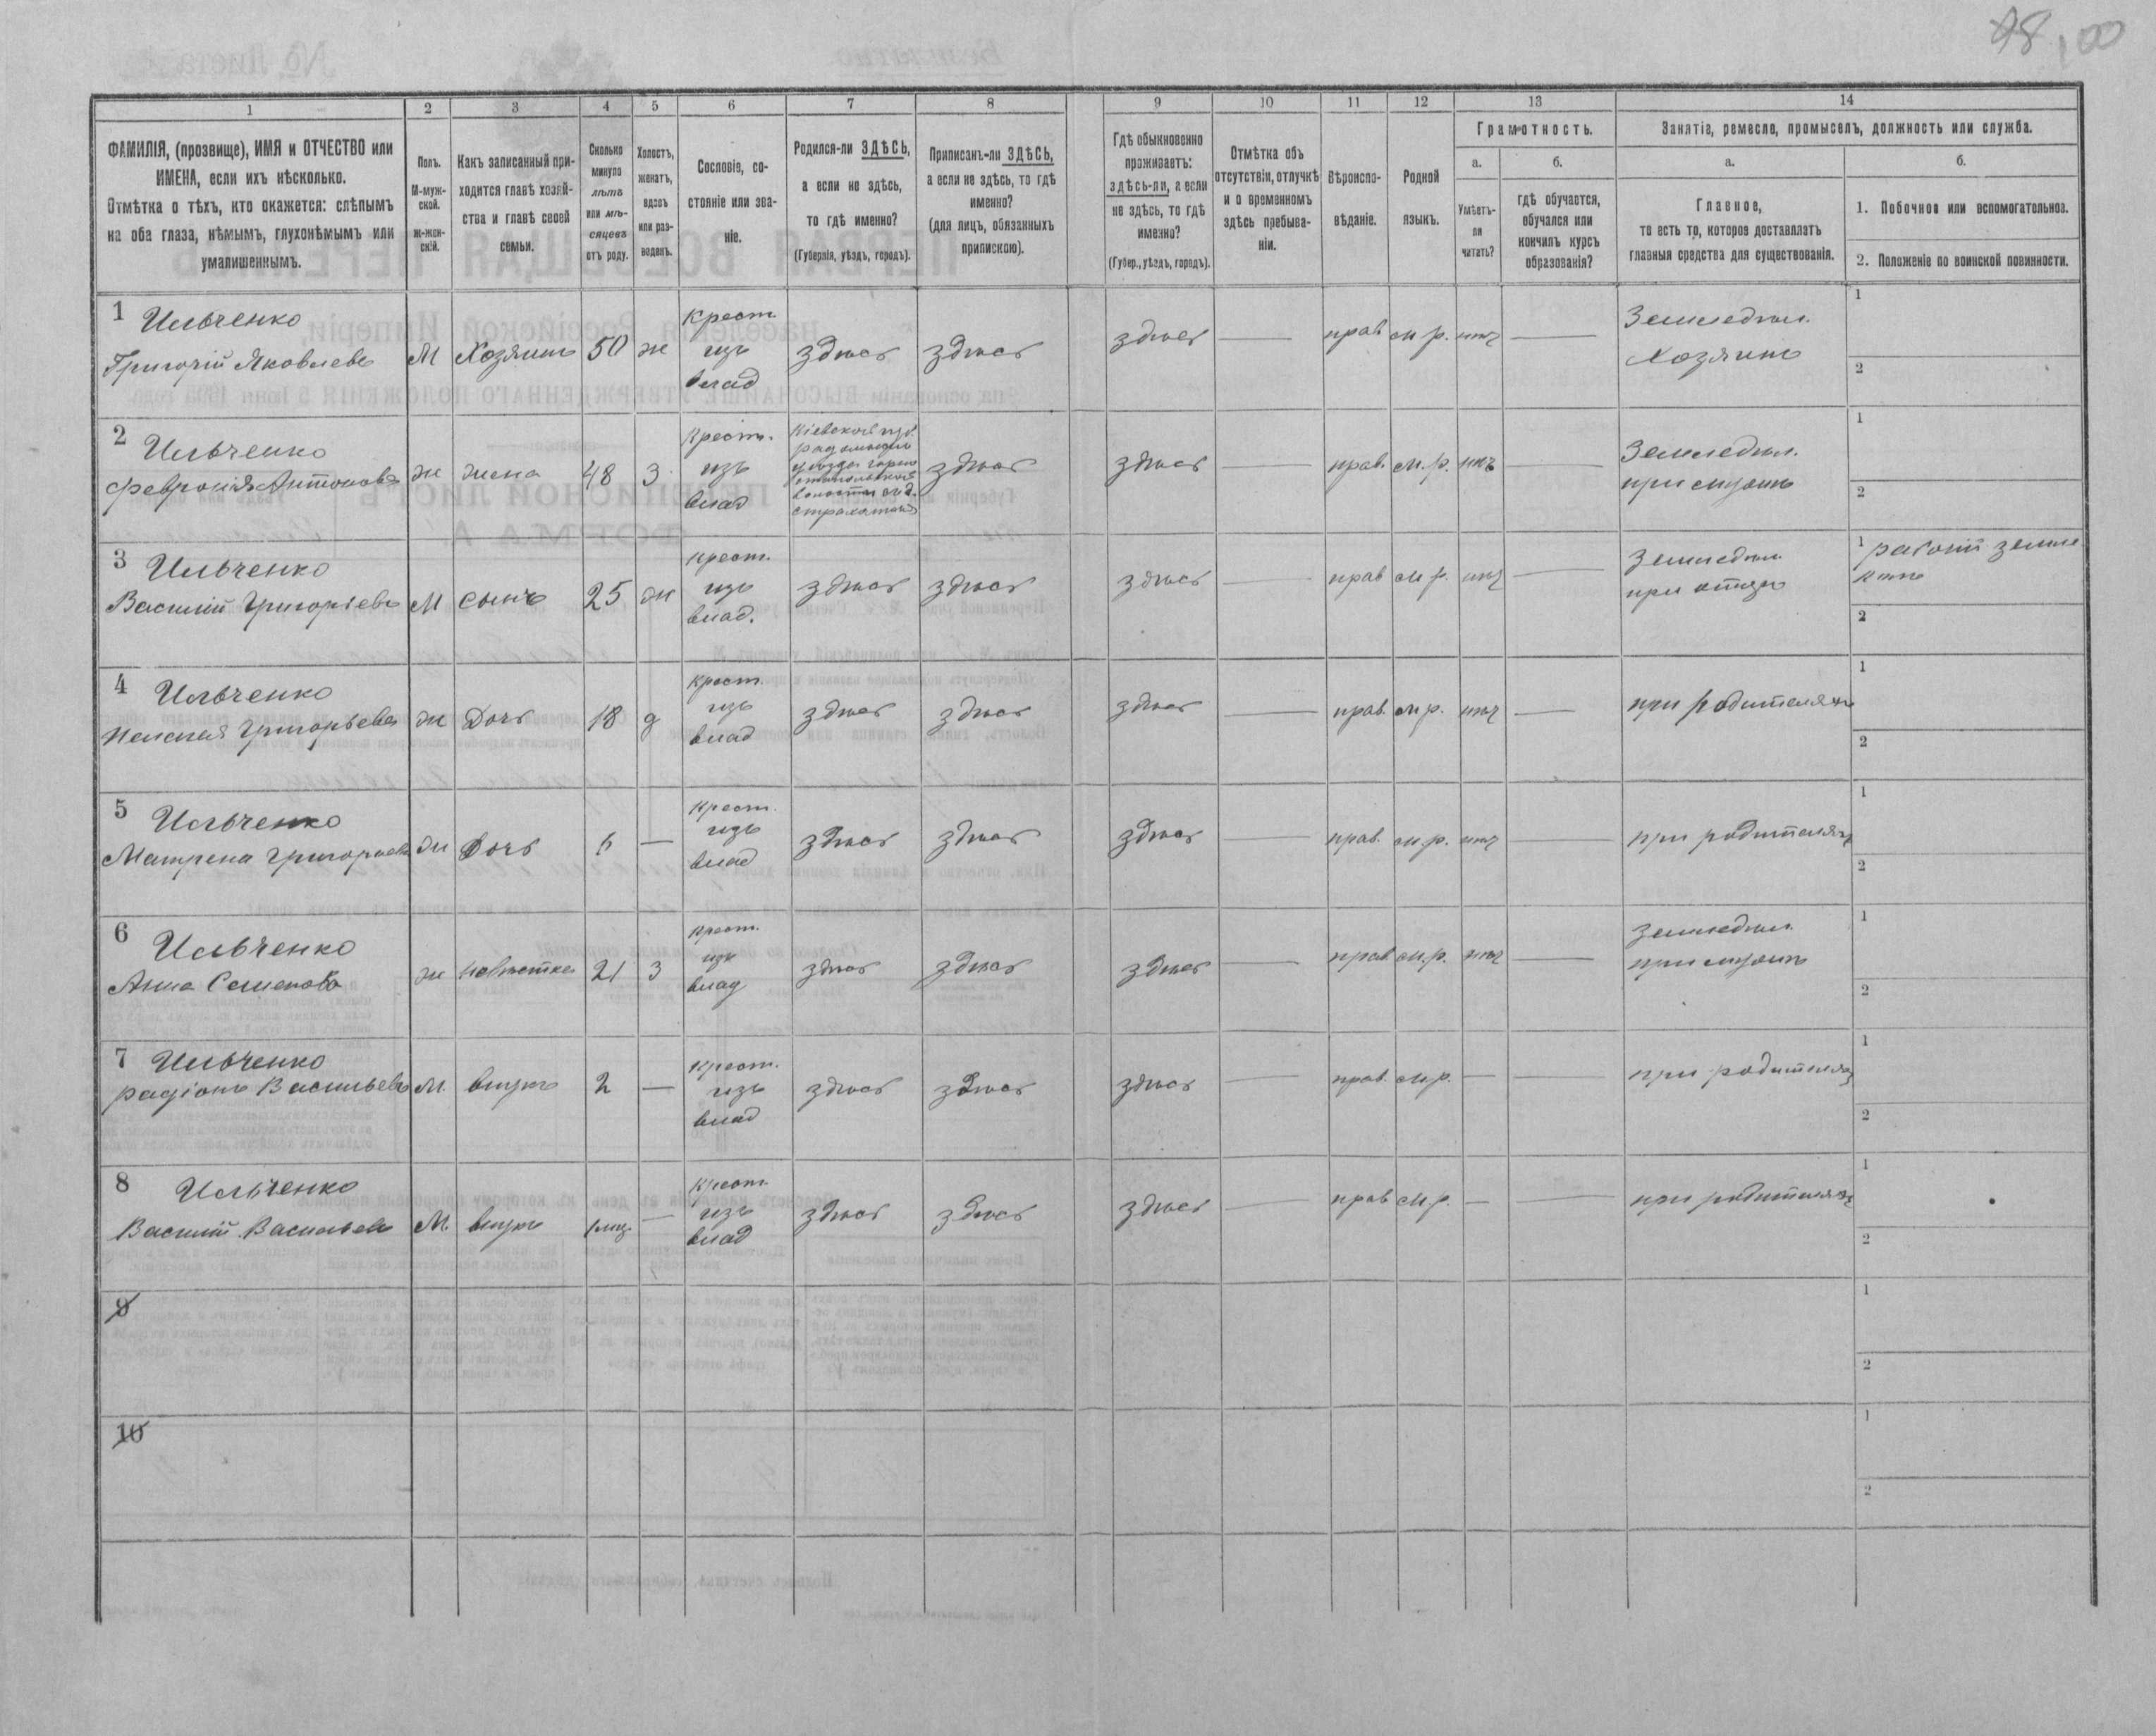 98,00
1
2
3
4
5
6
7
8
9
10
11
12
13
14
ФАМИЛІЯ, (прозвище), ИМЯ и ОТЧЕСТВО или
ИМЕНА, если ихъ нѣсколько.
Отмѣтка о тѣхъ, кто окажется: слѣпымъ
на оба глаза, нѣмымъ, глухонѣмымъ или
умалишеннымъ.
Полъ.
М-муж-
ской.
ж-жен-
скій.
Какъ записанный при-
ходится главѣ хозяй-
ства и главѣ своей
семьи.
Сколько
минуло
лѣтъ
или мѣ-
сяцевъ
отъ роду.
Холостъ,
женатъ,
вдовъ
или раз-
веденъ.
Сословіе, со-
стояніе или зва-
ніе.
Родился-ли ЗДѢСЬ,
а если не здѣсь,
то гдѣ именно?
(Губернія, уѣздъ, городъ).
Приписанъ-ли ЗДѢСЬ,
а если не здѣсь, то гдѣ
именно?
(для лицъ, обязанныхъ
припискою).
Гдѣ обыкновенно
проживаетъ:
здѣсь-ли, а если
не здѣсь, то гдѣ
именно?
(Губер., уѣздъ, городъ).
Отмѣтка объ
отсутствіи, отлучкѣ
и о временномъ
здѣсь пребыва-
ніи.
Вѣроиспо-
вѣданіе.
Родной
языкъ.
Грамотность.
а.
б.
Умѣетъ-
ли
читать?
гдѣ обучается,
обучался или
кончилъ курсъ
образованія?
Занятіе, ремесло, промыселъ, должность или служба.
а.
б.
Главное,
то есть то, которое доставляетъ
главныя средства для существованія.
1. Побочное или вспомогательное.
2. Положеніе по воинской повинности.
1 Ильченко
Григорій Яковлевъ
М Хозяинъ 50 ж
Крест.
изъ
влад
здѣсь здѣсь здѣсь — прав м.р. нѣт —
Земледѣл.
Хозяинъ
1
2
2 Ильченко
Февронія Антонова
ж жена 48 З
Крест.
изъ
влад
Кіевской губ.
уѣзда
волости
здѣсь здѣсь — прав. м.р. нѣтъ —
Земледѣл.
при мужѣ
1
2
3 Ильченко
Василій Григорьевъ
М сынъ 25 ж
крест.
изъ
влад.
здѣсь здѣсь здѣсь — прав м.р. нѣт —
Земледѣл.
при отцѣ
1 рабочій
2
4 Ильченко
Григорьева
ж Дочь 18 д
крест.
изъ
влад
здѣсь здѣсь здѣсь — прав. м.р. нѣт —
при родителяхъ
1
2
5 Ильченко
Матрена Григорьева
ж Дочь 6 —
крест.
изъ
влад
здѣсь здѣсь здѣсь — прав. м.р. нѣт —
при родителях
1
2
6 Ильченко
Анна Семенова
ж невѣстка 21 З
крест.
изъ
влад
здѣсь здѣсь здѣсь — прав. м.р. нѣт —
земледѣл.
при мужѣ
1
2
7 Ильченко
Радіонъ Васильевъ
М. внукъ 2 —
крест.
изъ
влад
здѣсь здѣсь здѣсь — прав. м.р. — —
при родителях
1
2
8 Ильченко
Василій Васильевъ
М. внукъ 1 мѣц. —
крест.
изъ
влад
здѣсь здѣсь здѣсь — прав м.р. — —
при родителях
1
2
9
1
2
10
1
2